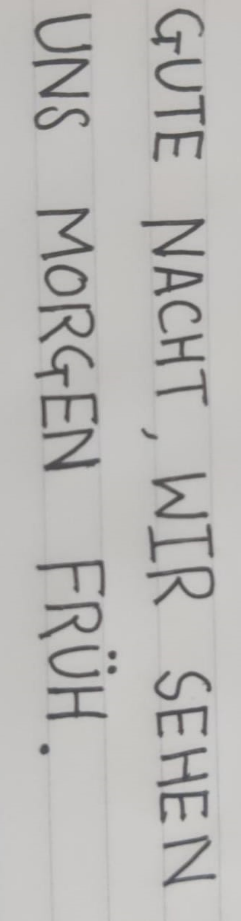 GUTE NACHT, WIR SEHEN
UNS MORGEN FRÜH.